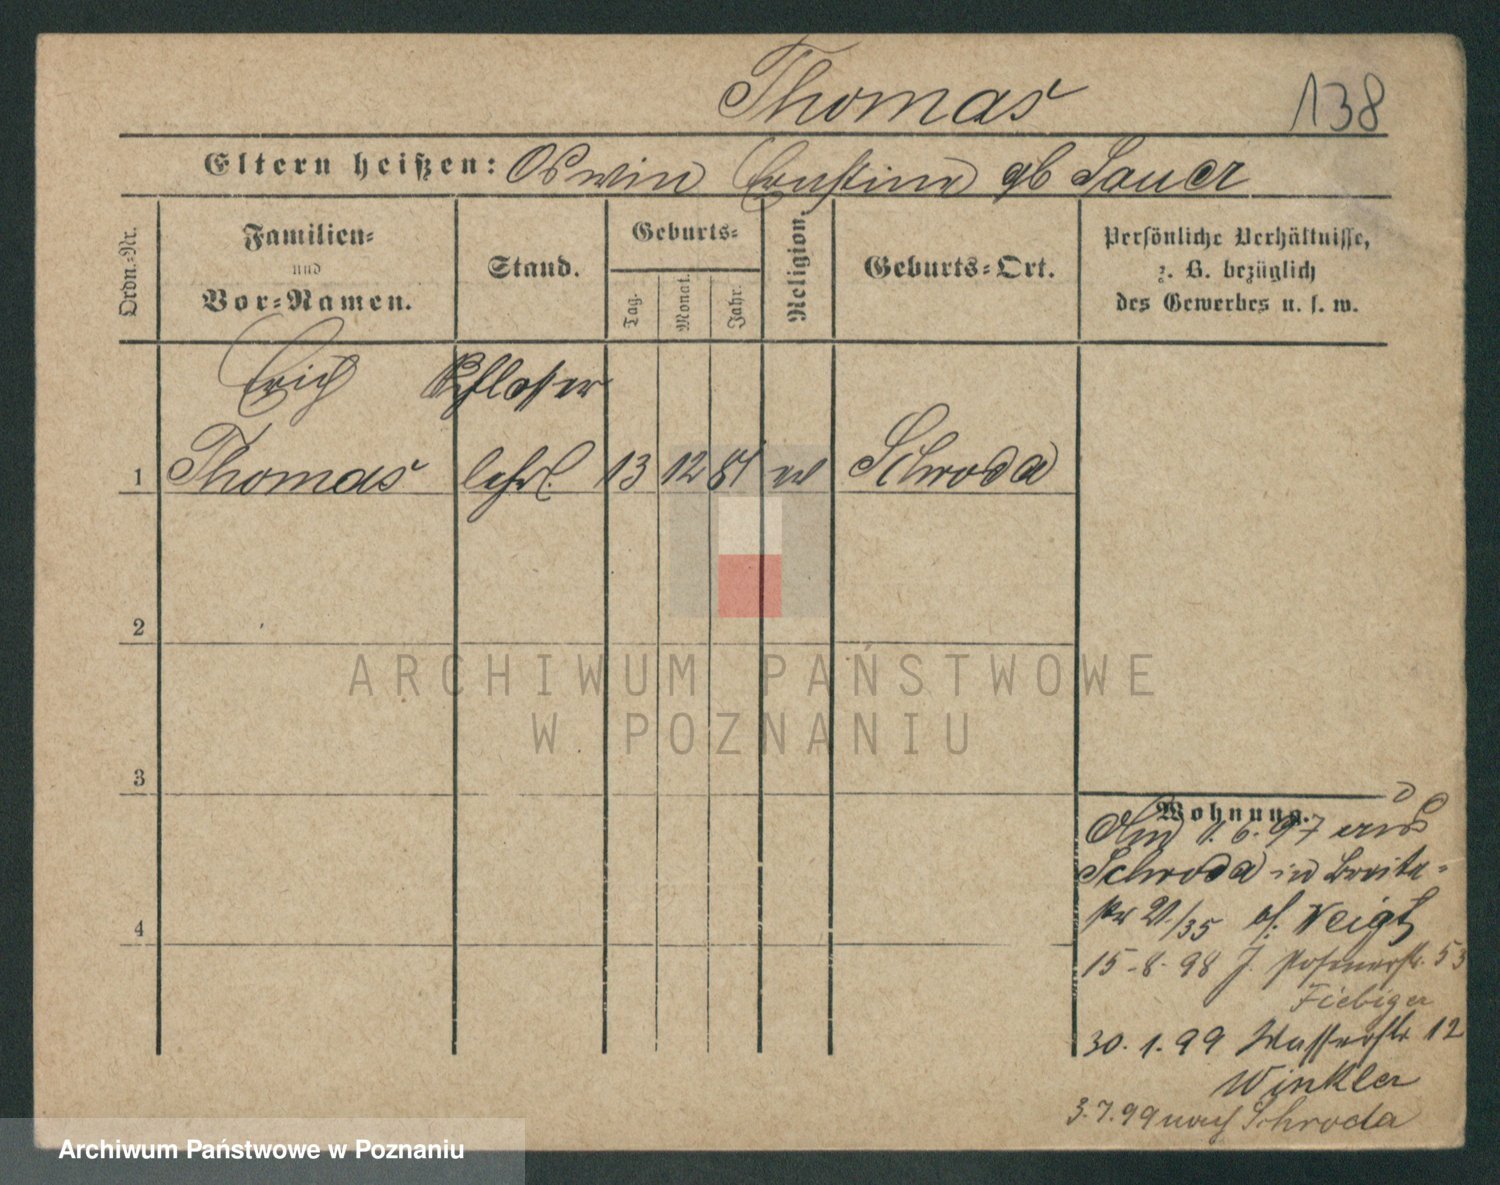 Thomas 138
Eltern heißen: Oswin Ernstine gb Sauer
Ordn.-Nr.
Familien-
und
Vor-Namen.
Stand.
Geburts-
Tag.
Monat.
Jahr.
Religion.
Geburts-Ort.
Persönliche Verhältnisse,
z. B. bezüglich
des Gewerbes u. s. w.
Erich Schlosser
1 Thomas lehrl. 13 12 81 ev Schroda
2
3
4
Wohnung.
1.6.97 aus
Schroda in Breite-
str 21/35 Veigt
15-8-98 J. Posenerstr. 53
Fiebiger
30.1.99 Wasserstr 12
Winkler
3.7.99 nach Schroda
ARCHIWUM PAŃSTWOWE
W POZNANIU
Archiwum Państwowe w Poznaniu